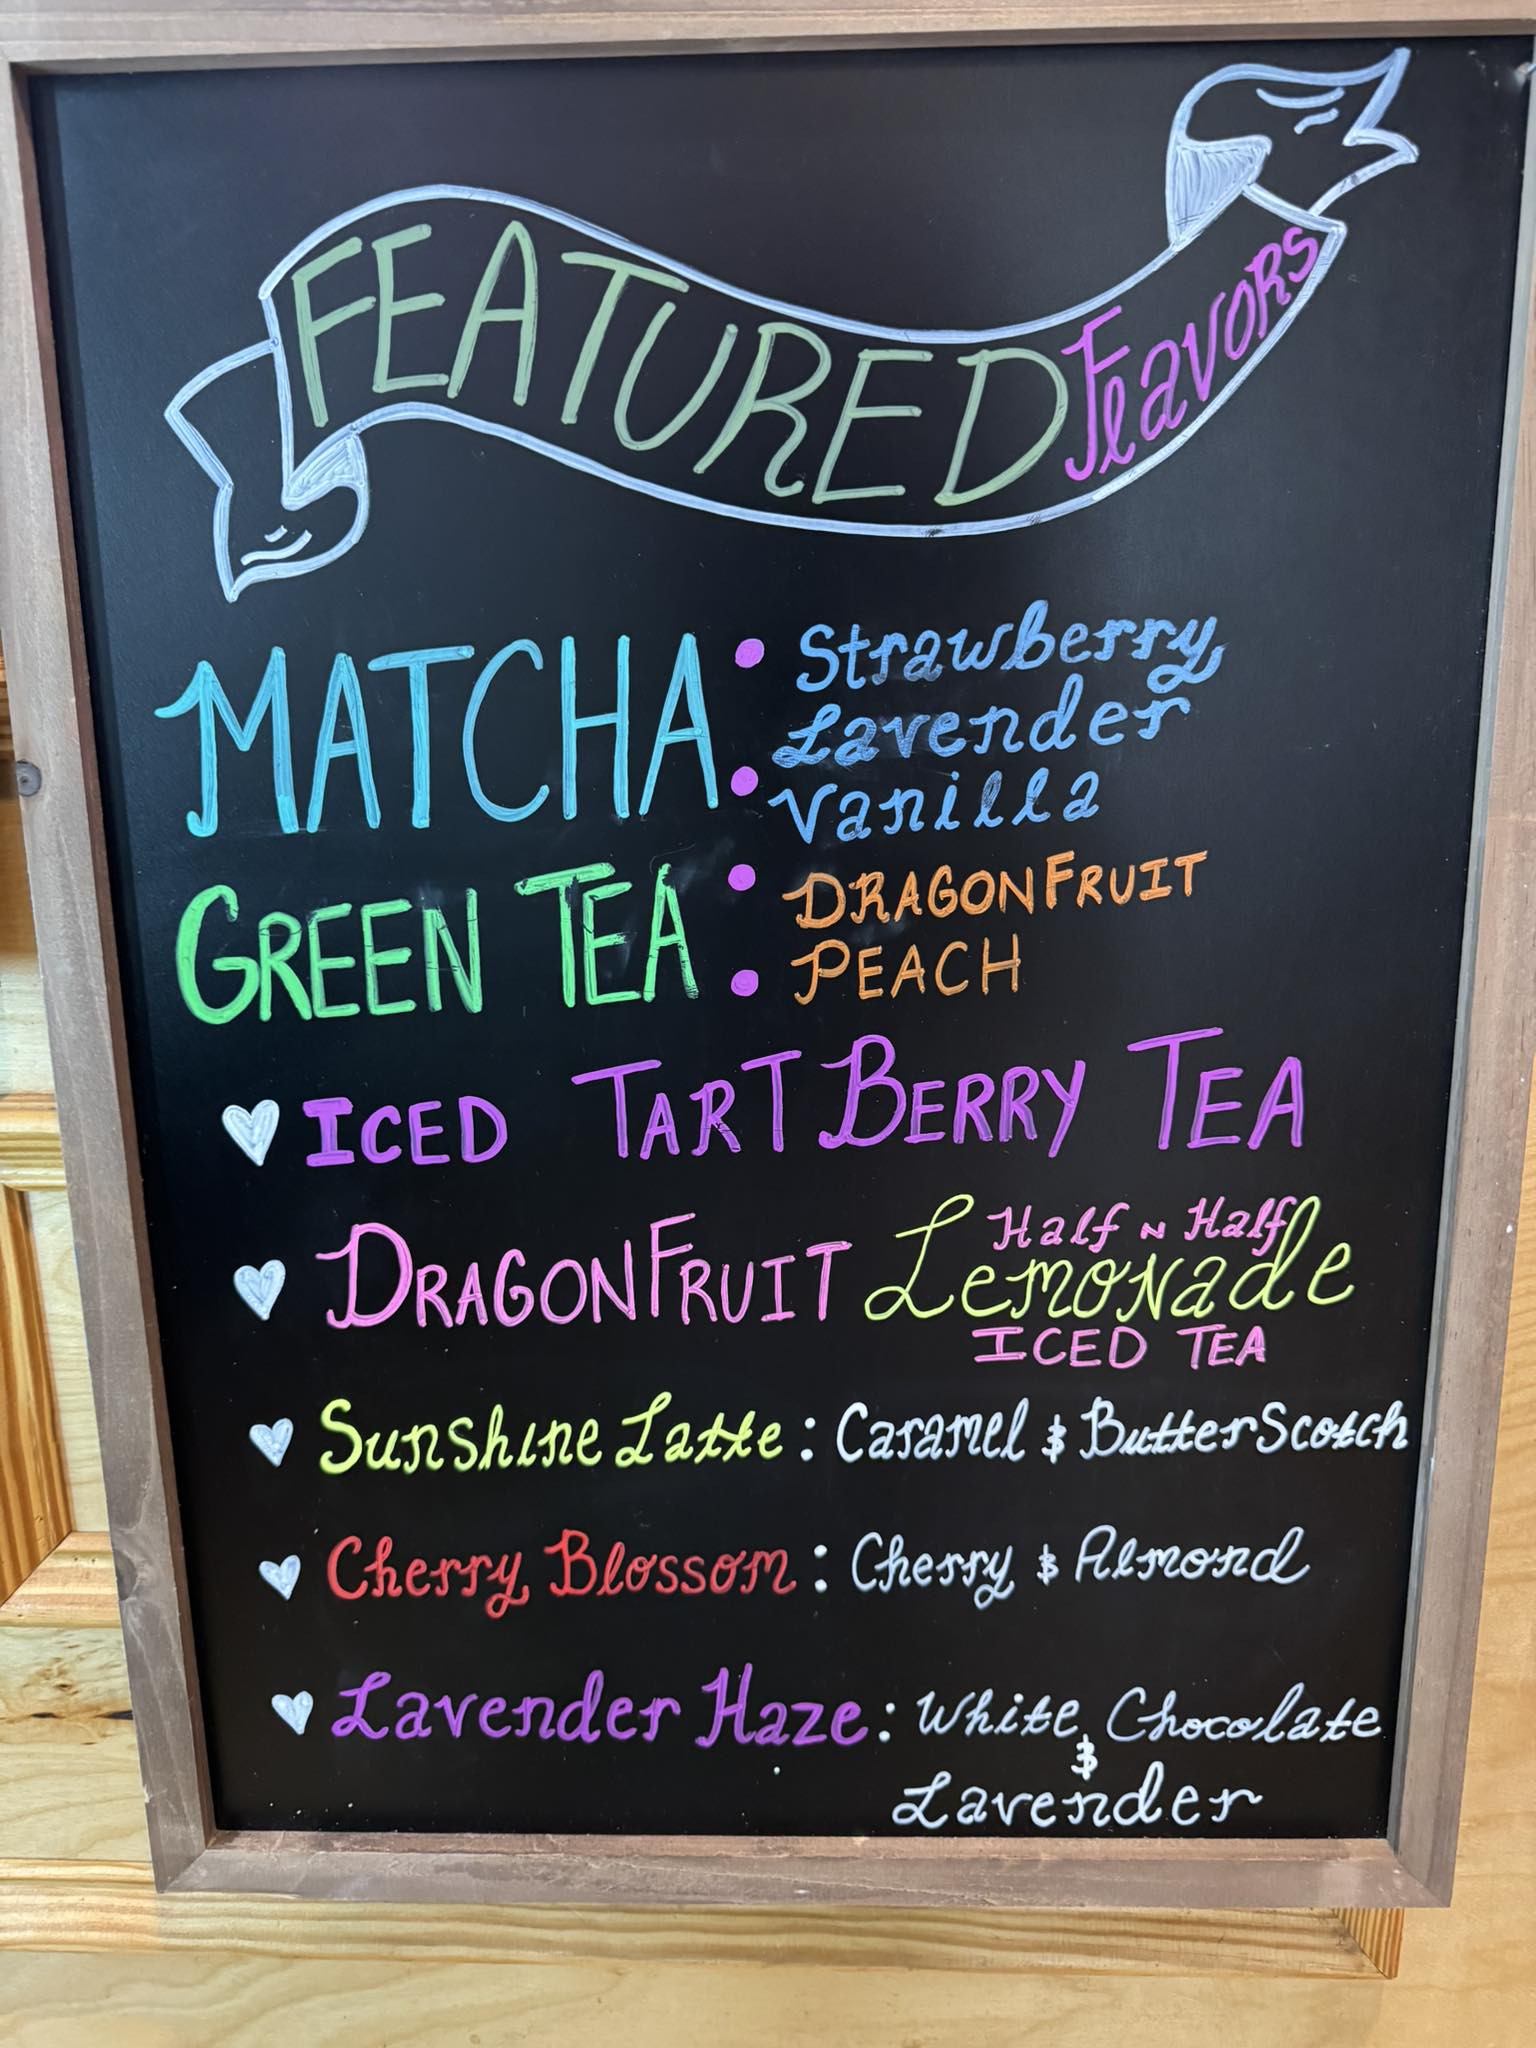 FEATURED Flavors
MATCHA: Strawberry
Lavender
Vanilla
GREEN TEA: DRAGONFRUIT
PEACH
ICED TART BERRY TEA
Half N Half
DRAGONFRUIT Lemonade
ICED TEA
Sunshine Latte: Caramel & ButterScotch
Cherry Blossom: Cherry & Almond
Lavender Haze: White Chocolate
&
Lavender